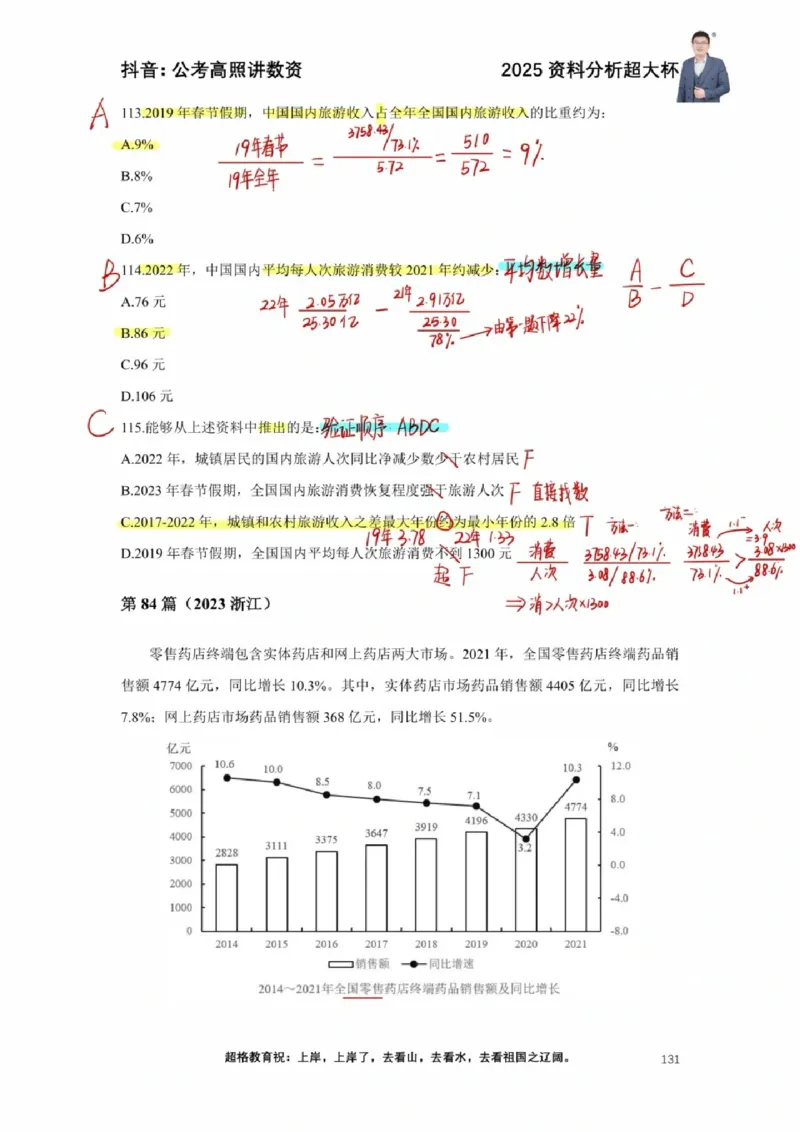 抖音：公考高照讲数资
2025 资料分析超大杯
A 113.2019 年春节假期，中国国内旅游收入占全年全国国内旅游收入的比重约为：
A.9%
19年春节/19年全年 = 3758.43/73.1% / 5.72 = 510/572 = 9%
B.8%
C.7%
D.6%
B 114.2022 年，中国国内平均每人次旅游消费较 2021 年约减少：平均数增长量 A/B - C/D
A.76 元
22年 2.05万亿/25.30亿 - 21年 2.91万亿/(25.30/78%) → 由第一题下降22%
B.86 元
C.96 元
D.106 元
C 115.能够从上述资料中推出的是：验证顺序 ABDC
A.2022 年，城镇居民的国内旅游人次同比净减少数少于农村居民 F
B.2023 年春节假期，全国国内旅游消费恢复程度强于旅游人次 F 直接找数
C.2017-2022 年，城镇和农村旅游收入之差最大年份约为最小年份的 2.8 倍 T
19年 3.78 22年 1.33
D.2019 年春节假期，全国国内平均每人次旅游消费不到 1300 元
超 F
方法一
消费/人次 3758.43/73.1% / 3.08/88.6%
⇒消>人次×1300
方法二
消费 1.1⁻ 人次
=3.9
3758.43/73.1% > 3.08×1300/88.6%
1.1⁺
第 84 篇（2023 浙江）
零售药店终端包含实体药店和网上药店两大市场。2021 年，全国零售药店终端药品销
售额 4774 亿元，同比增长 10.3%。其中，实体药店市场药品销售额 4405 亿元，同比增长
7.8%；网上药店市场药品销售额 368 亿元，同比增长 51.5%。
亿元 %
7000 6000 5000 4000 3000 2000 1000 0
10.6 10.0 8.5 8.0 7.5 7.1 3.2 10.3
2828 3111 3375 3647 3919 4196 4330 4774
12.0 8.0 4.0 0.0 -4.0 -8.0
2014 2015 2016 2017 2018 2019 2020 2021
销售额 同比增速
2014～2021年全国零售药店终端药品销售额及同比增长
超格教育祝：上岸，上岸了，去看山，去看水，去看祖国之辽阔。
131